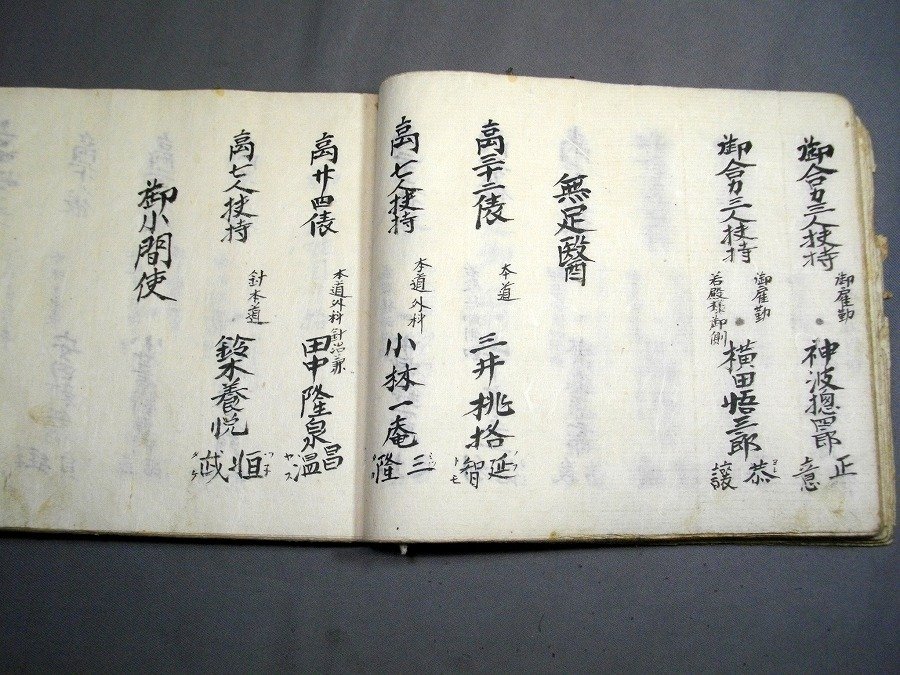 御合力三人扶持
御雇勤
神波摠四郎
正意
御合力三人扶持
御雇勤
若殿様御側
横田悟三郎
恭譲
無足醫
高三十二俵
本道
三井桃格
延智
トモ
高七人扶持
本道外科
小林一庵
三隆
高廿四俵
本道外科針治兼
田中隆泉
昌温
ヤス
高七人扶持
針本道
鈴木養悦
恒
御小間使